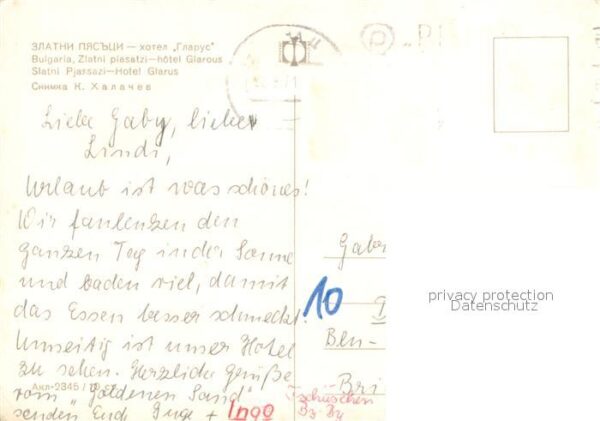 ЗЛАТНИ ПЯСЪЦИ — хотел „Гларус"
Bulgaria, Zlatni piasatzi—hôtel Glarous
Slatni Pjassazi—Hotel Glarus
Снимка К. Халачев
Liebe Gaby, lieber
Lindi,
Urlaub ist was schönes!
Wir faulenzen den
ganzen Tag in der Sonne
und baden viel, damit
das Essen besser schmeckt.
Umseitig ist unser Hotel
zu sehen. Herzliche Grüße
vom „Goldenen Sand"
senden Euch Inge + Ingo
Tschüschen
Акл-2345
10
Gabr
Ben-
Bri
privacy protection
Datenschutz